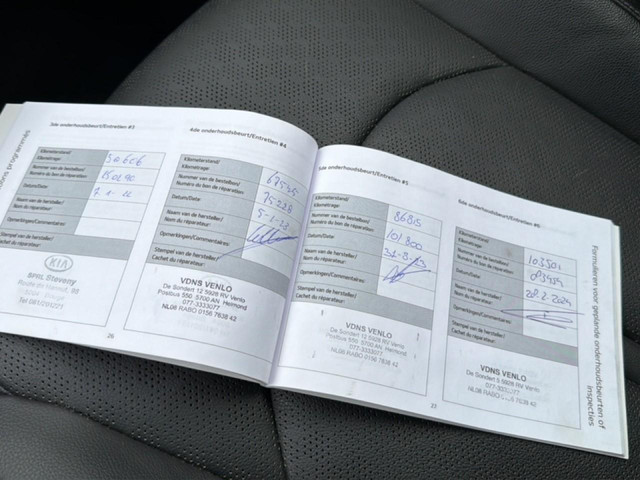 3de onderhoudsbeurt/Entretien #3
Kilometerstand/
Kilométrage:
Nummer van de bestelbon/
Numéro du bon de réparation:
Datum/Date:
Naam van de hersteller/
Nom du réparateur:
Opmerkingen/Commentaires:
Stempel van de hersteller/
Cachet du réparateur:
KIA
SPRL Steveny
26
4de onderhoudsbeurt/Entretien #4
Kilometerstand/
Kilométrage:
67535
Nummer van de bestelbon/
Numéro du bon de réparation:
75228
Datum/Date:
5-1-23
Naam van de hersteller/
Nom du réparateur:
Opmerkingen/Commentaires:
Stempel van de hersteller/
Cachet du réparateur:
VDNS VENLO
De Sondert 12 5928 RV Venlo
Postbus 550 5700 AN Helmond
077-3333077
NL06 RABO 0156 7638 42
5de onderhoudsbeurt/Entretien #5
Kilometerstand/
Kilométrage:
86815
Nummer van de bestelbon/
Numéro du bon de réparation:
101800
Datum/Date:
Naam van de hersteller/
Nom du réparateur:
Opmerkingen/Commentaires:
Stempel van de hersteller/
Cachet du réparateur:
VDNS VENLO
De Sondert 12 5928 RV Venlo
Postbus 550 5700 AN Helmond
077-3333077
NL06 RABO 0156 7638 42
6de onderhoudsbeurt/Entretien #6
Kilometerstand/
Kilométrage:
103501
Nummer van de bestelbon/
Numéro du bon de réparation:
Datum/Date:
28-2-2024
Naam van de hersteller/
Nom du réparateur:
Opmerkingen/Commentaires:
Stempel van de hersteller/
Cachet du réparateur:
VDNS VENLO
De Sondert 5928 RV Venlo
077-3333077
NL06 RABO 0156 7638 42
Formulieren voor geplande onderhoudsbeurten of
inspecties